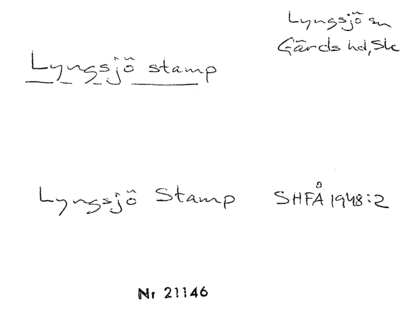 Lyngsjö sn
Gärds hd, Sk
Lyngsjö stamp
Lyngsjö Stamp SHFÅ 1948:2
Nr 21146